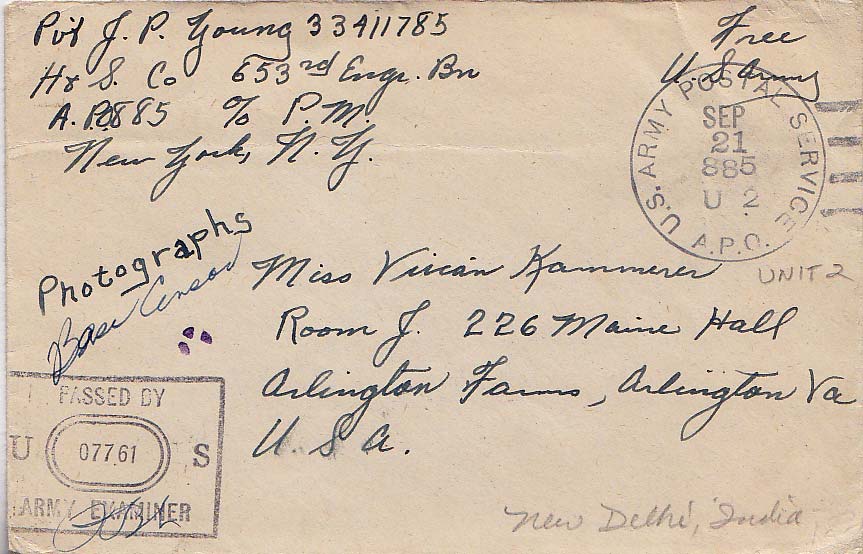 Pvt J. P. Young 33411785
Hq S. Co 653rd Engr. Bn
A.P.O 885 % P.M
New York, N.Y.
Free
U.S Army
U.S. ARMY POSTAL SERVICE
SEP
21
885
U 2
A.P.O.
UNIT 2
Photographs
Base Censor
Miss Vivian Kammerer
Room J. 226 Maine Hall
Arlington Farms, Arlington Va
U.S.A.
PASSED BY
U 07761 S
ARMY EXAMINER
New Delhi, India